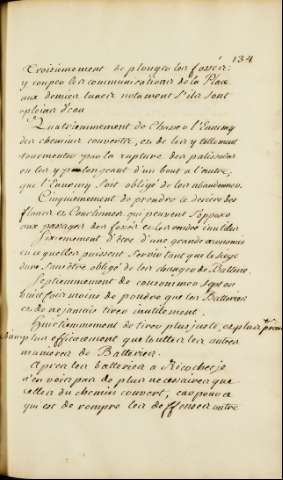 134
Troisiemement de plonger les fossés
y couper les communications de la Place
aux demies lunes notament s'ils sont
pleins d'eau
Quatriemement de Chasser l'Ennemy
des chemins couverts, ou de les y tellement
tourmenter par la rupture des palissades
en les y plongeant d'un bout a l'autre,
que l'Ennemy soit obligé de les abandonner.
Cinquiemement de prendre le derriere des
flancs et Courtinnes qui peuvent s'opposer
aux passages des fossés et les rendre inutiles
Sixiemement d'être d'une grande œconomie
en ce qu'elles puissent servir tant que le siege
dure sans être obligé de les changer de Batterie
Septiemement de consommer sept ou
huit fois moins de poudre que les Batteries
et de ne jamais tirer inutilement.
Huitiemement de tirer plus juste, et plus
plus efficacement que toutes les autres
manieres de Batteries.
Apres les batteries a Ricochet je
n'en vois pas de plus necessaires que
celles du chemin couvert, car pour ce
qui est de rompre les deffenses entre